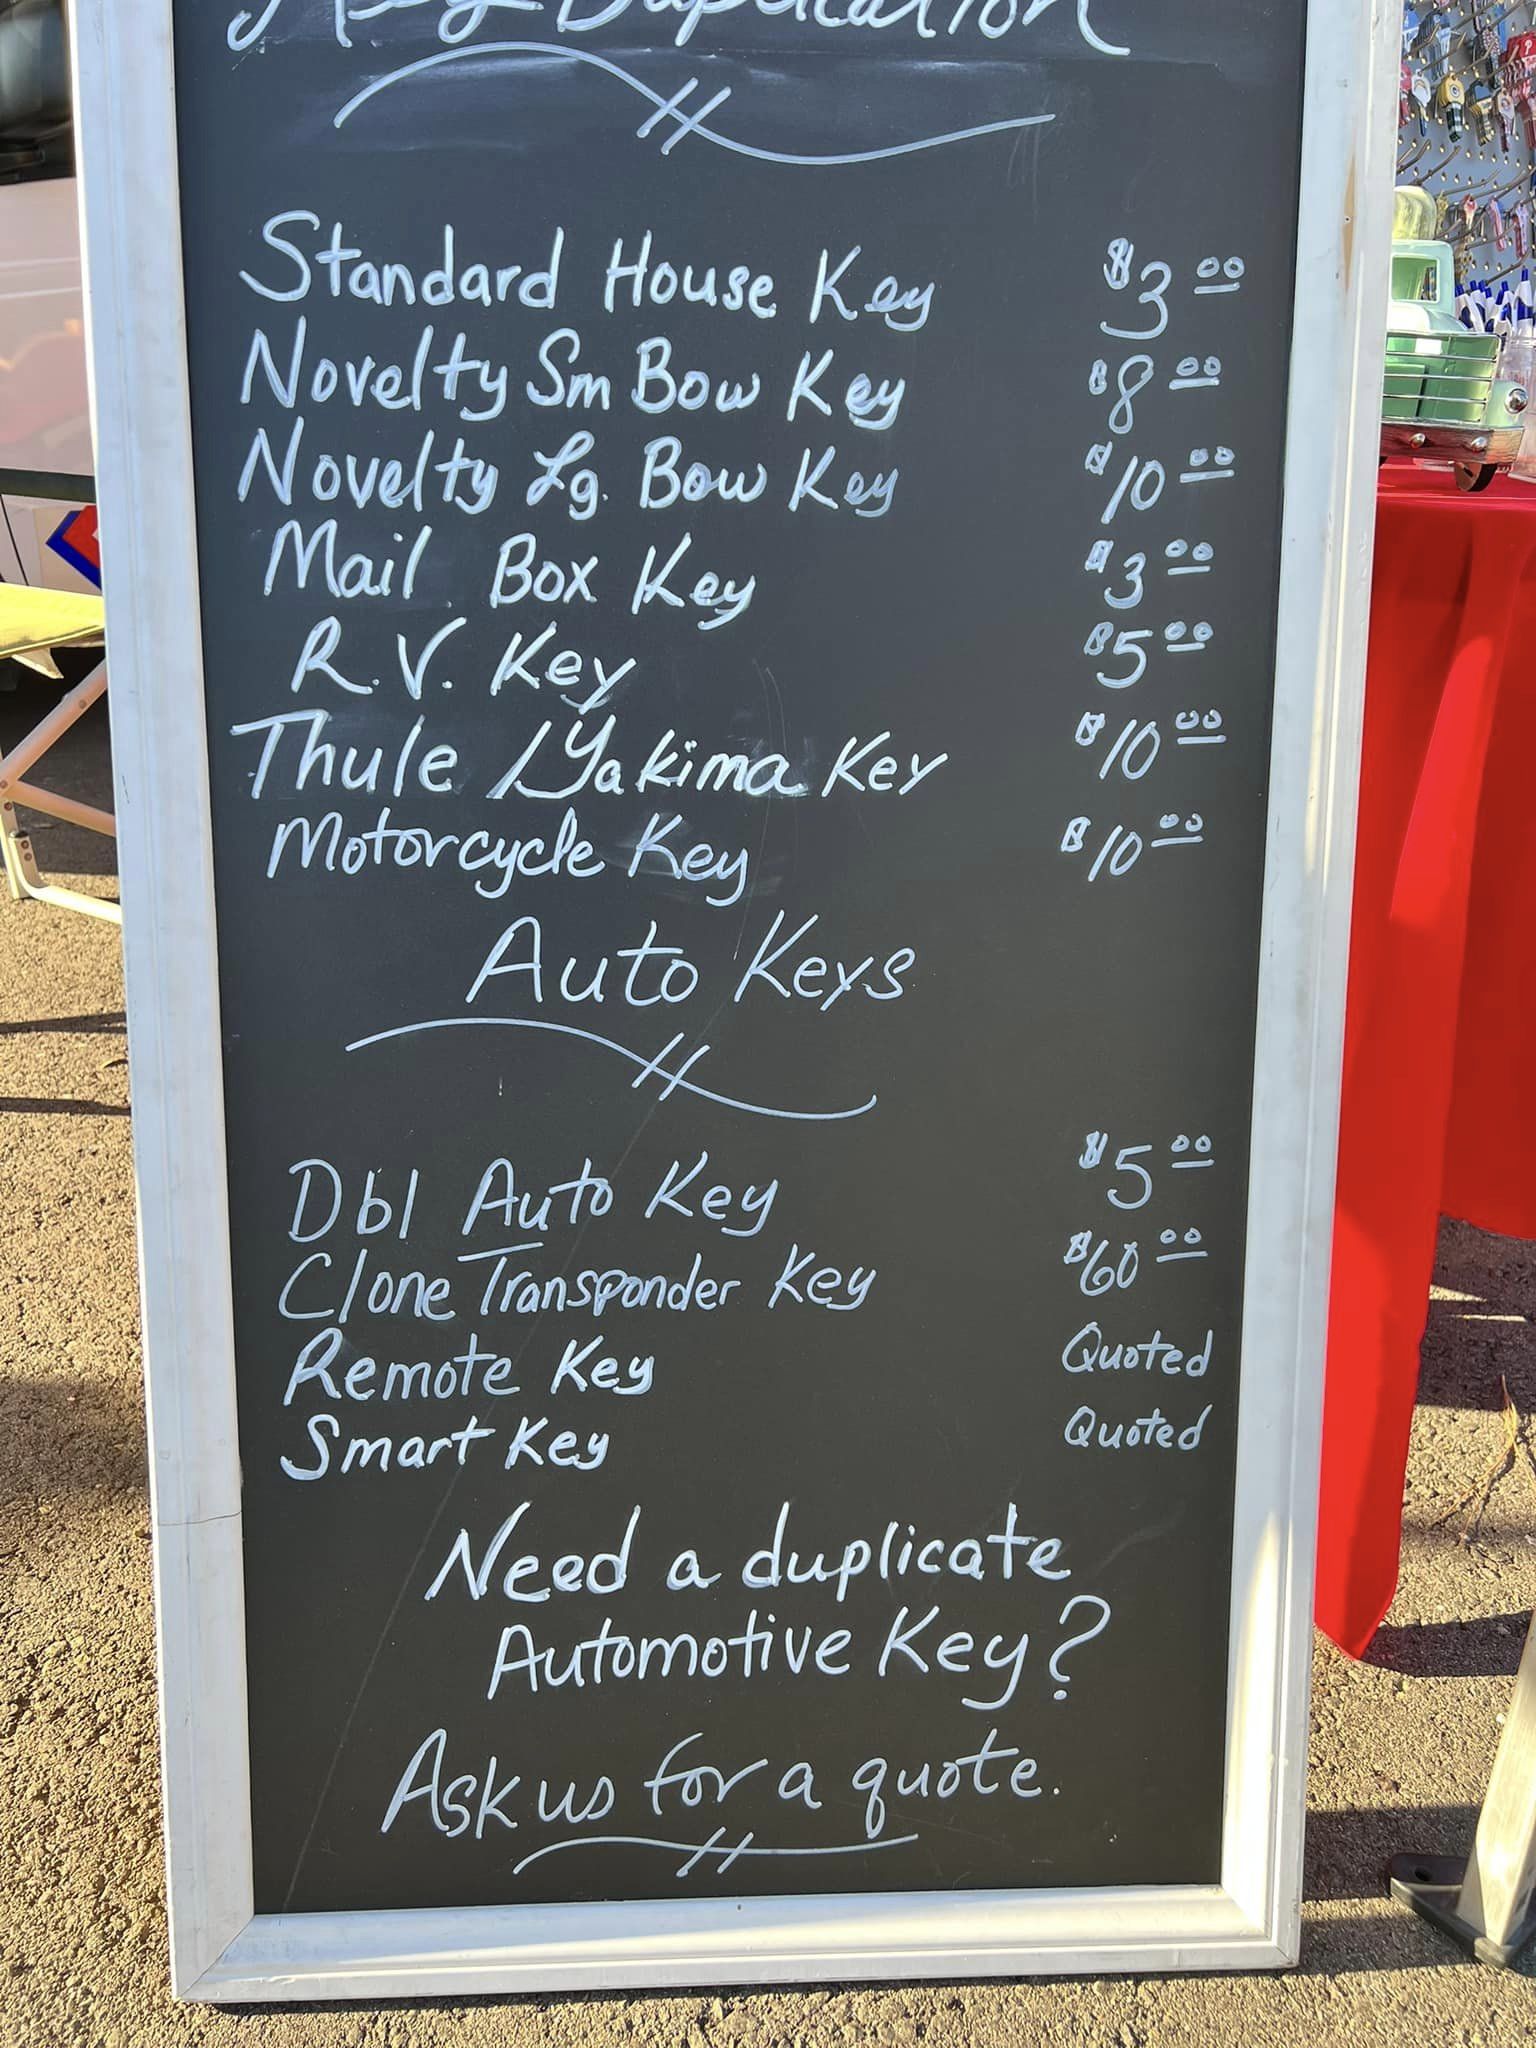 Key Duplication
Standard House Key $3.00
Novelty Sm Bow Key $8.00
Novelty Lg. Bow Key $10.00
Mail Box Key $3.00
R.V. Key $5.00
Thule / Yakima Key $10.00
Motorcycle Key $10.00
Auto Keys
Dbl Auto Key $5.00
Clone Transponder Key $60.00
Remote Key Quoted
Smart Key Quoted
Need a duplicate
Automotive Key?
Ask us for a quote.